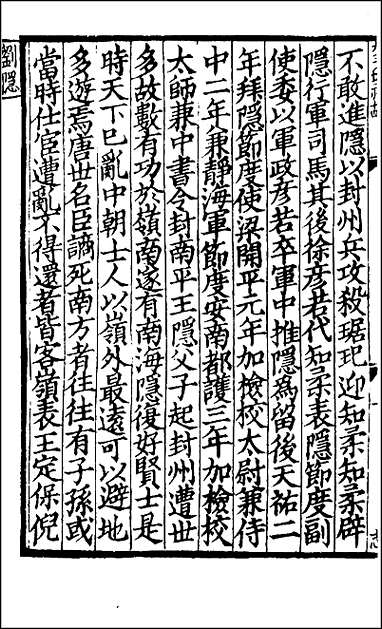 不敢進隱以封州兵攻殺琚玘迎知柔知柔辟
隱行軍司馬其後徐彥若代知柔表隱節度副
使委以軍政彥若卒軍中推隱爲留後天祐二
年拜隱節度使梁開平元年加檢校太尉兼侍
中二年兼靜海軍節度安南都護三年加檢校
太師兼中書令封南平王隱父子起封州遭世
多故數有功於嶺南遂有南海隱復好賢士是
時天下已亂中朝士人以嶺外最遠可以避地
多遊焉唐世名臣謫死南方者往往有子孫或
當時仕宦遭亂不得還者皆客嶺表王定保倪
劉隱